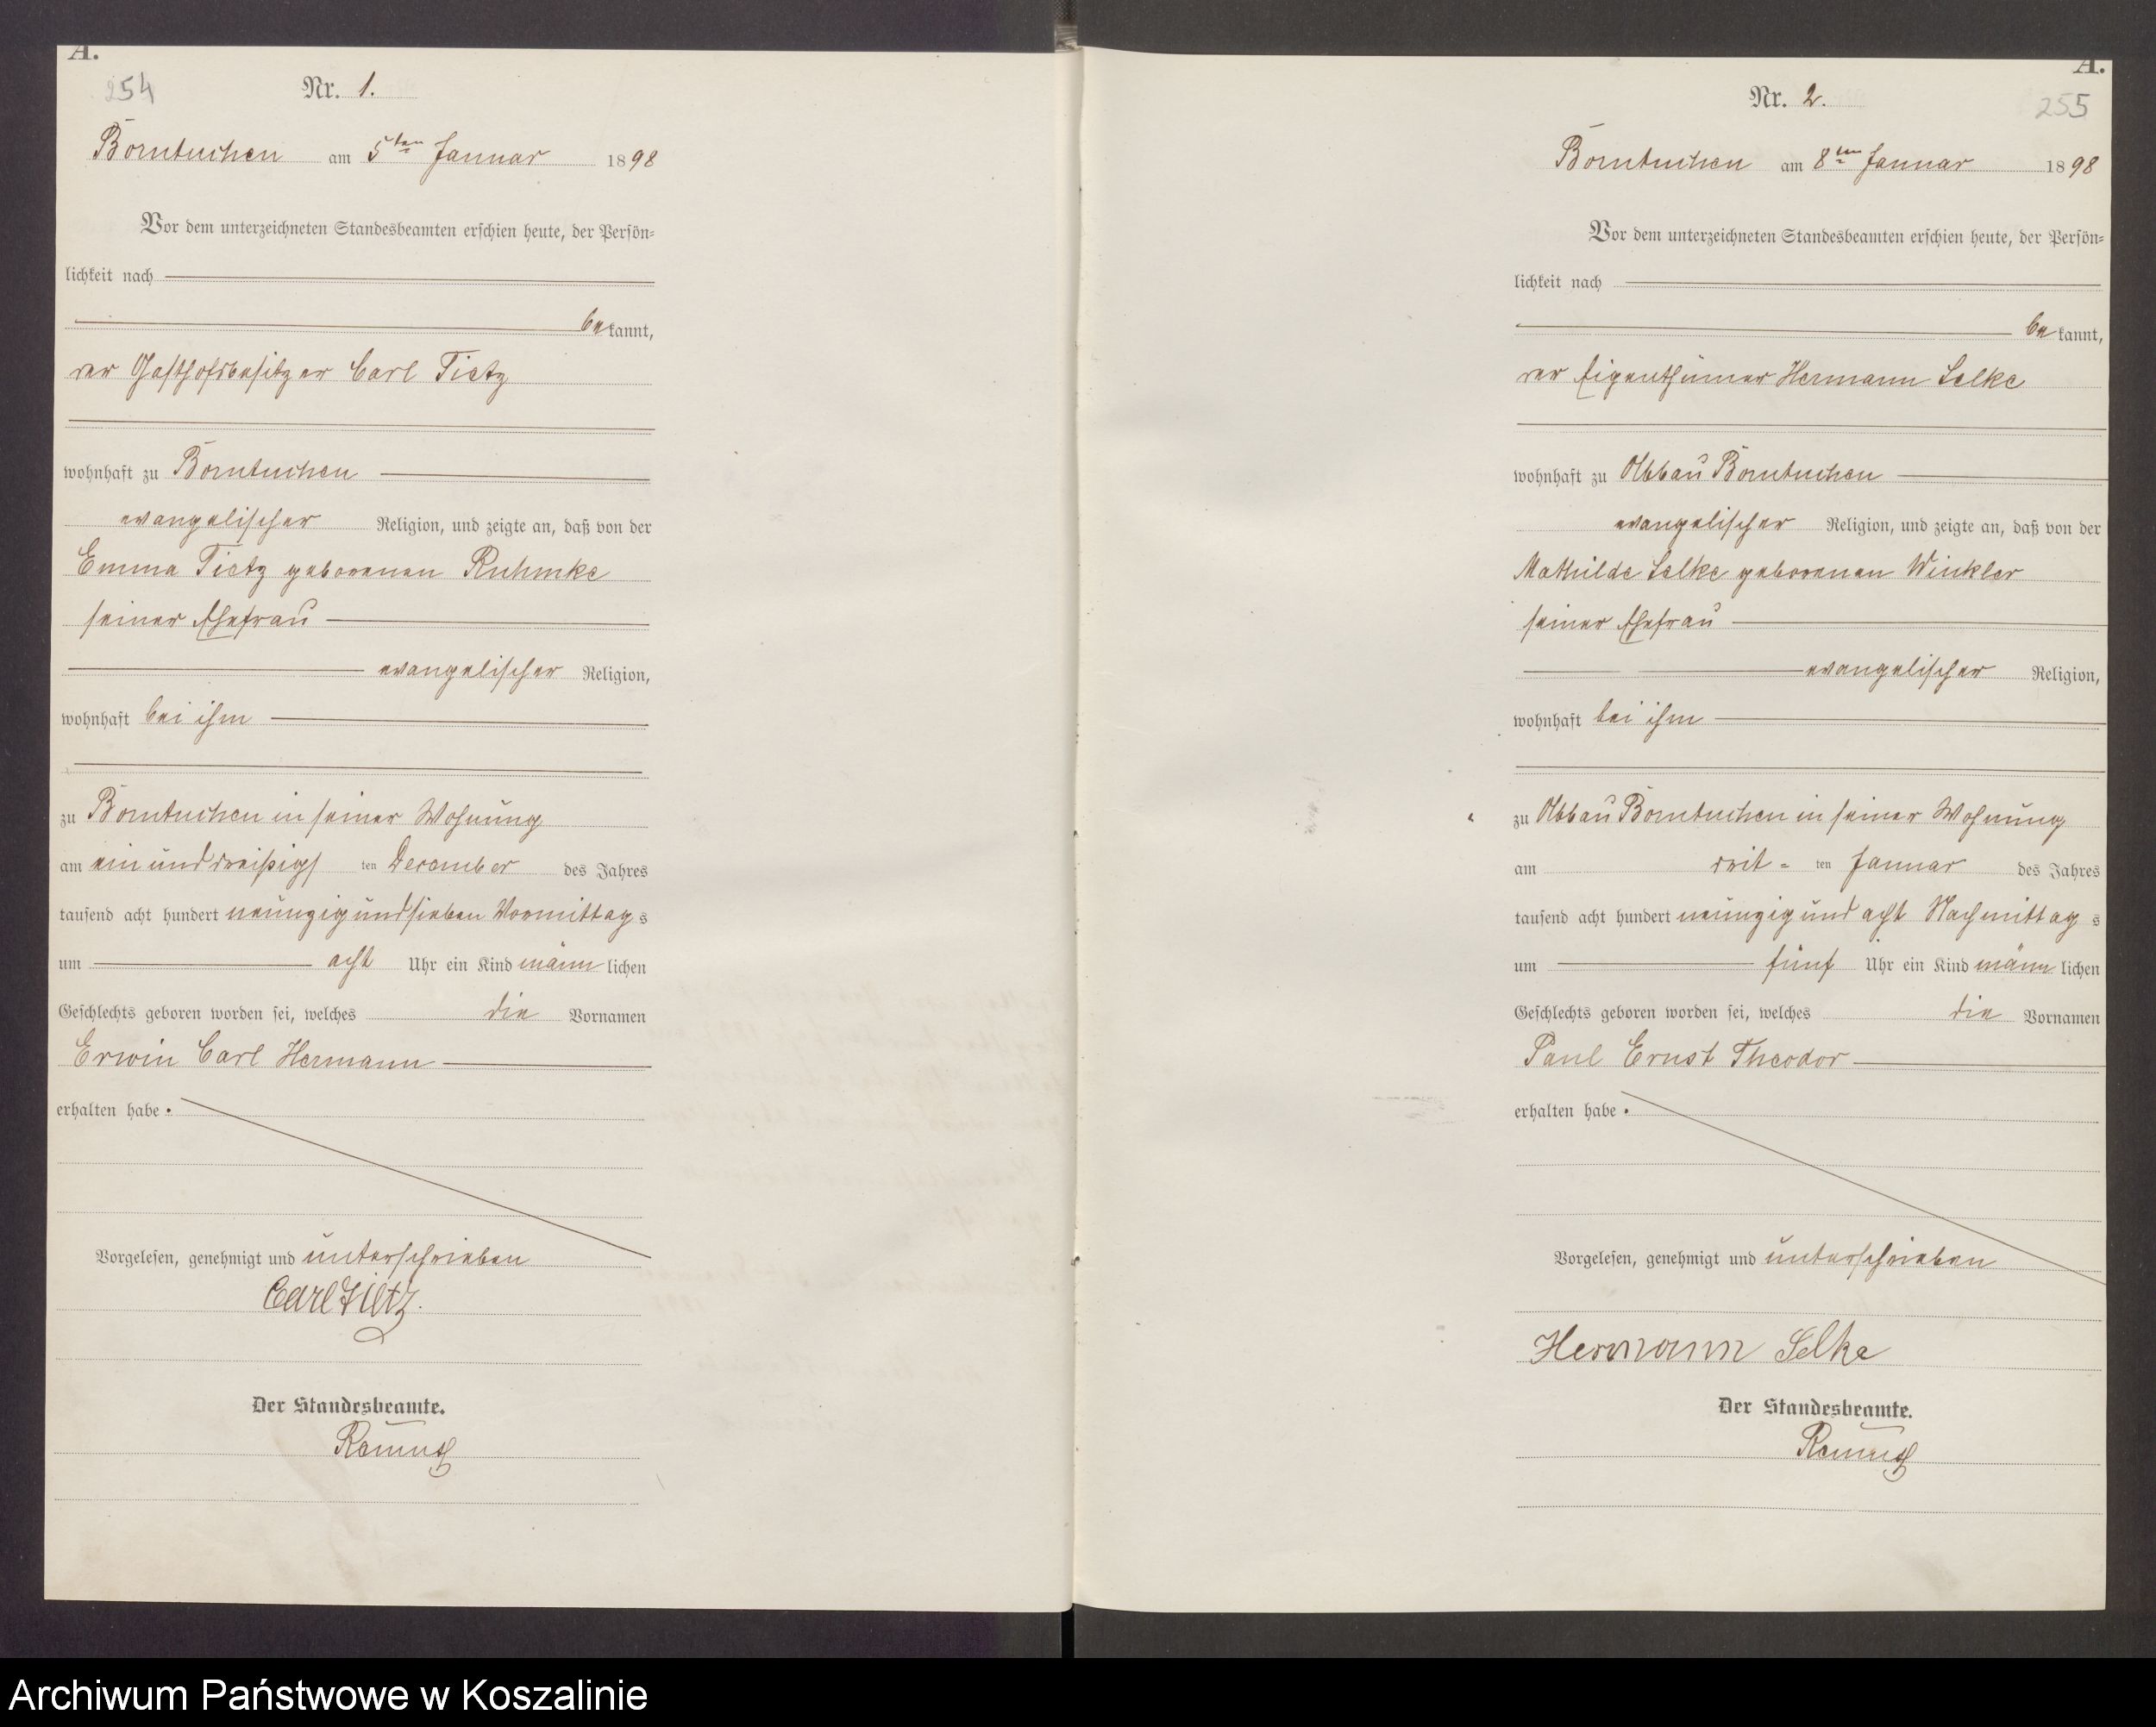 A.
254
Nr. 1.
Borntuchen am 5ten Januar 1898
Vor dem unterzeichneten Standesbeamten erschien heute, der Persön-
lichkeit nach
bekannt,
der Gasthofsbesitzer Carl Tietz
wohnhaft zu Borntuchen
evangelischer Religion, und zeigte an, daß von der
Emma Tietz geborenen Ruhmke
seiner Ehefrau
evangelischer Religion,
wohnhaft bei ihm
zu Borntuchen in seiner Wohnung
am ein und dreißigsten December des Jahres
tausend acht hundert neunzig und sieben Vormittags
um acht Uhr ein Kind männlichen
Geschlechts geboren worden sei, welches die Vornamen
Erwin Carl Hermann
erhalten habe.
Vorgelesen, genehmigt und unterschrieben
Carl Tietz.
Der Standesbeamte.
A.
255
Nr. 2.
Borntuchen am 8ten Januar 1898
Vor dem unterzeichneten Standesbeamten erschien heute, der Persön-
lichkeit nach
bekannt,
der Eigenthümer Hermann Selke
wohnhaft zu Abbau Borntuchen
evangelischer Religion, und zeigte an, daß von der
Mathilde Selke geborenen Winkler
seiner Ehefrau
evangelischer Religion,
wohnhaft bei ihm
zu Abbau Borntuchen in seiner Wohnung
am drit-ten Januar des Jahres
tausend acht hundert neunzig und acht Nachmittags
um fünf Uhr ein Kind männlichen
Geschlechts geboren worden sei, welches die Vornamen
Paul Ernst Theodor
erhalten habe.
Vorgelesen, genehmigt und unterschrieben
Hermann Selke
Der Standesbeamte.
Archiwum Państwowe w Koszalinie